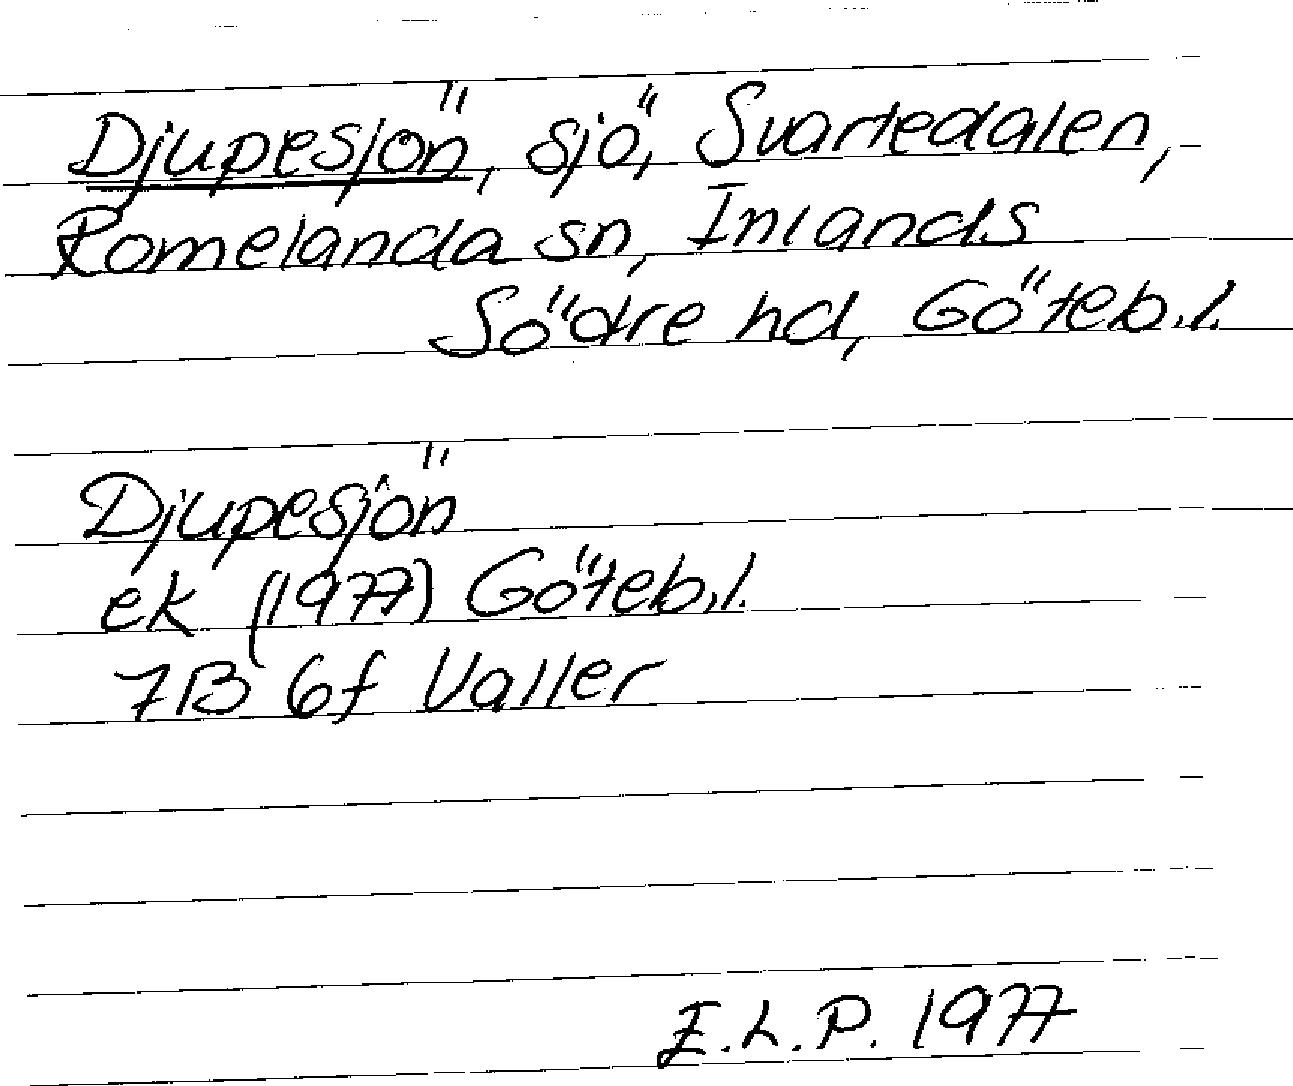 Djupesjön, sjö, Svartedalen,
Romelanda sn, Inlands
Södre hd, Göteb.l.
Djupesjön
ek (1977) Göteb.l.
7B 6f Valler
E.L.P. 1977